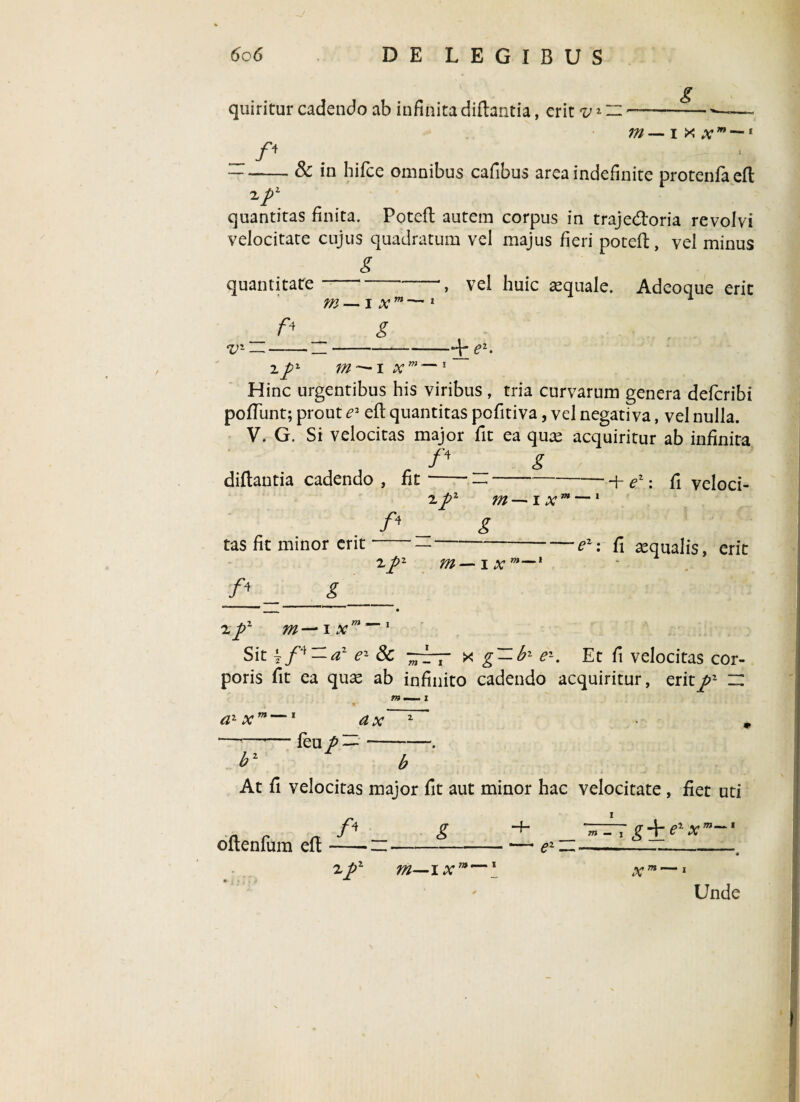 606 DE LEGIBUS
g
quiritur cadendo ab infinita diſtantia, erit v² = ————
m — 1 × x^{m—1}
f⁴
= —— & in hiſce omnibus caſibus area indefinite protenſa eſt
2p²
quantitas finita. Poteſt autem corpus in trajectoria revolvi
velocitate cujus quadratum vel majus fieri poteſt, vel minus
g
quantitate ————, vel huic æquale. Adeoque erit
m — 1 x^{m—1}
f⁴ g
v² = —— = ———— ± e².
2p² m — 1 x^{m—1}
Hinc urgentibus his viribus, tria curvarum genera deſcribi
poſſunt; prout e² eſt quantitas poſitiva, vel negativa, vel nulla.
V. G. Si velocitas major fit ea quæ acquiritur ab infinita
f⁴ g
diſtantia cadendo, fit —— = ———— + e²: ſi veloci-
2p² m — 1 x^{m—1}
f⁴ g
tas fit minor erit —— = ———— — e²: ſi æqualis, erit
2p² m — 1 x^{m—1}
f⁴ g
—— = ————.
2p² m — 1 x^{m—1}
Sit ½ f⁴ = a² e² & 1/(m—1) × g = b² e². Et ſi velocitas cor-
poris fit ea quæ ab infinito cadendo acquiritur, erit p² =
m — 1
a² x^{m—1} a x 2
———— ſeu p = ————.
b² b
At ſi velocitas major fit aut minor hac velocitate, fiet uti
f⁴ g + 1/(m—1) g ± e² x^{m—1}
oſtenſum eſt —— = ———— — e² = ————.
2p² m—1 x^{m—1} x^{m—1}
Unde